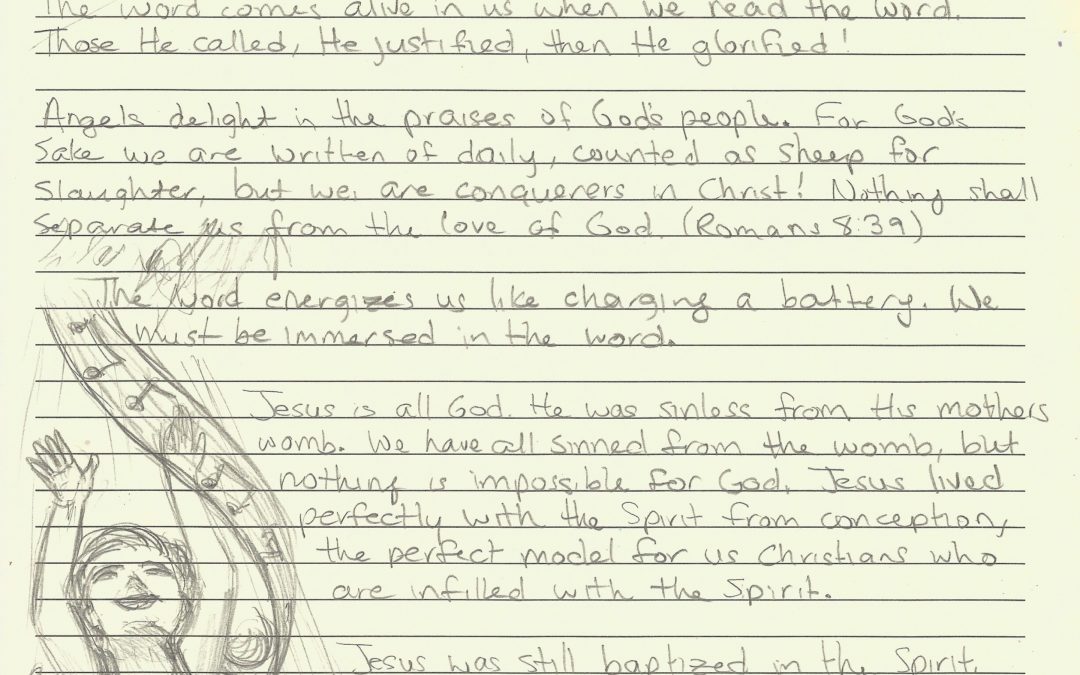 The word comes alive in us when we read the word.
Those He called, He justified, then He glorified!
Angels delight in the praises of God's people. For God's
sake we are written of daily, counted as sheep for
slaughter, but we are conquerers in Christ! Nothing shall
separate us from the love of God. (Romans 8:39)
The word energizes us like charging a battery. We
must be immersed in the word.
Jesus is all God. He was sinless from His mothers
womb. We have all sinned from the womb, but
nothing is impossible for God. Jesus lived
perfectly with the Spirit from conception,
the perfect model for us Christians who
are infilled with the Spirit.
Jesus was still baptized in the Spirit.